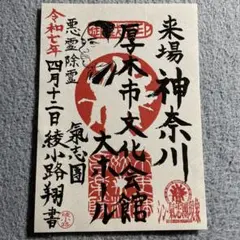 来場 神奈川
厚木市文化会館
大ホール
氣志團
綾小路翔書
令和七年四月十二日
悪霊除霊